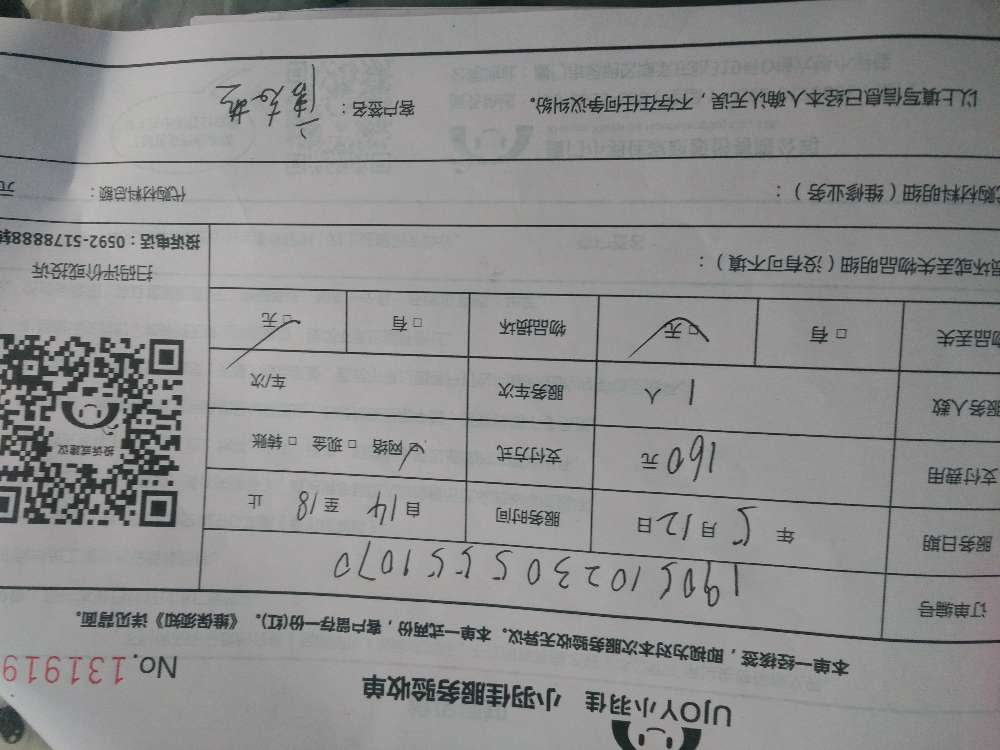 UJOY小羽佳 小羽佳服务验收单
No.131919
本单一经核签，即视为对本次服务验收无异议。本单一式两份，客户留存一份(红)。《维保须知》详见背面。
订单编号 1905102305551070
服务日期 年5月12日 服务时间 自14至18止
支付费用 160元 支付方式 ☑网络 □现金 □转账
服务人数 1人 服务车次 车/次
物品丢失 □有 □无 物品损坏 □有 □无
损坏或丢失物品明细（没有可不填）：
投诉或建议
扫码评价或投诉
投诉电话：0592-5178888转
代购材料明细（维修业务）： 代购材料总额： 元
以上填写信息已经本人确认无误，不存在任何争议纠纷。 客户签名：